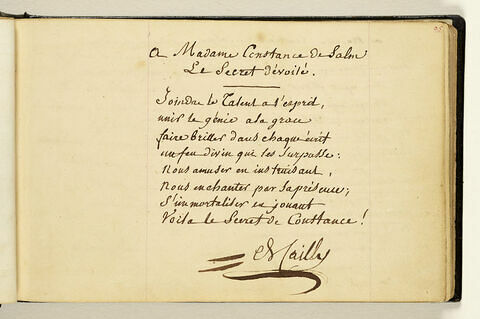 A Madame Constance de Salm
Le Secret dévoilé.
Joindre le Talent a l'esprit,
unir le génie a la grace
faire briller dans chaque écrit
un feu divin qui les surpasse:
Nous amuser en instruisant,
Nous enchanter par sa présence;
S'immortaliser en jouant
Voila le Secret de Constance!